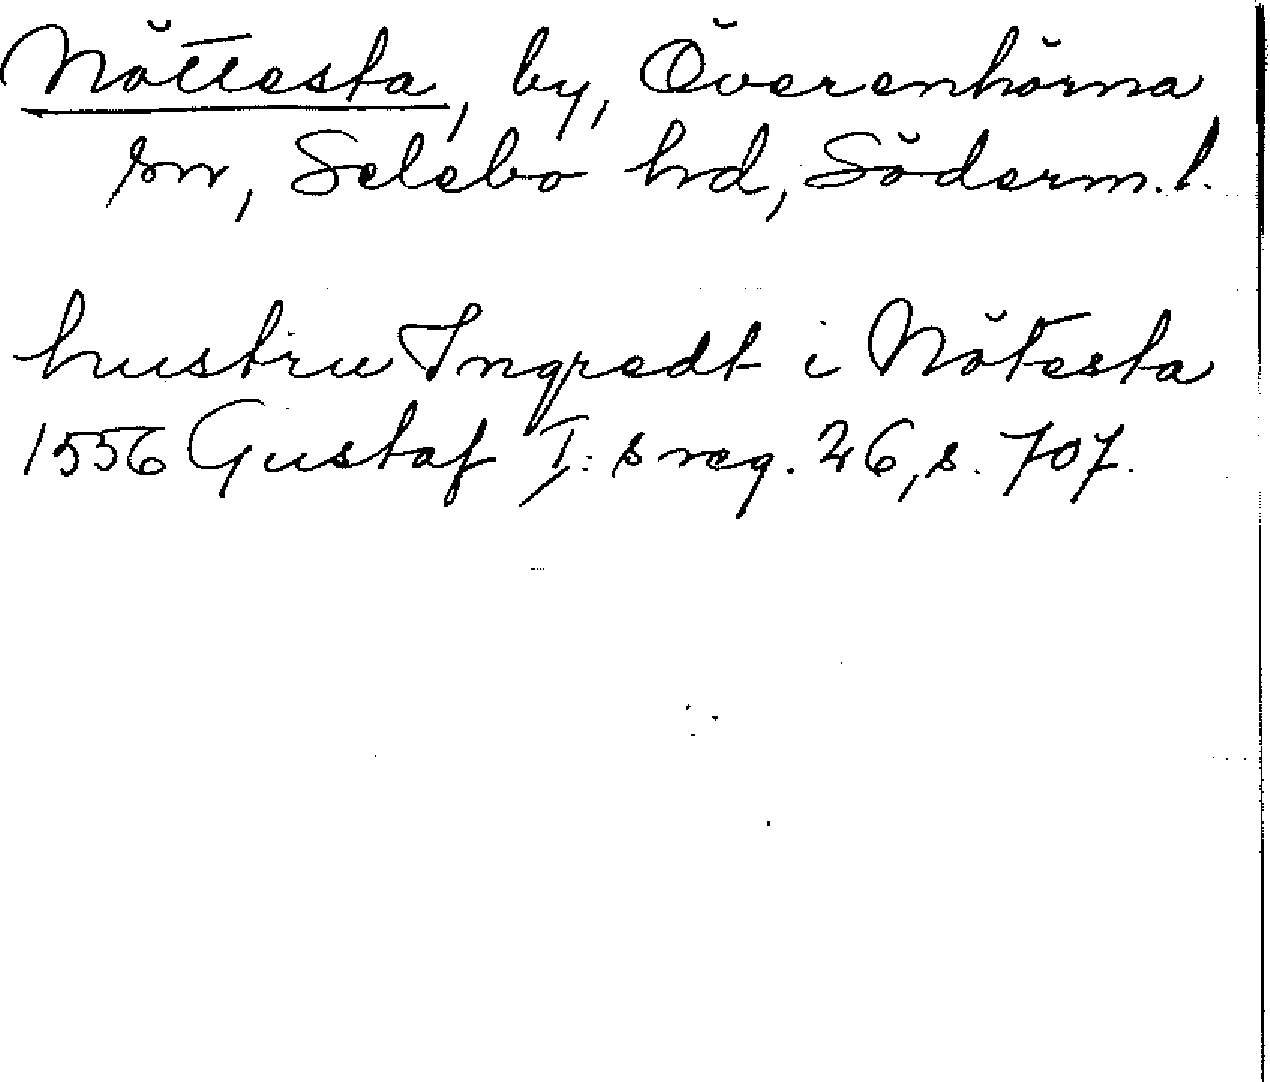 Nöttesta, by, Överenhörna
sn, Selebo hd, Söderm. l.
hustru Ingredt i Nötesta
1556 Gustaf I: s reg. 26, s. 707.